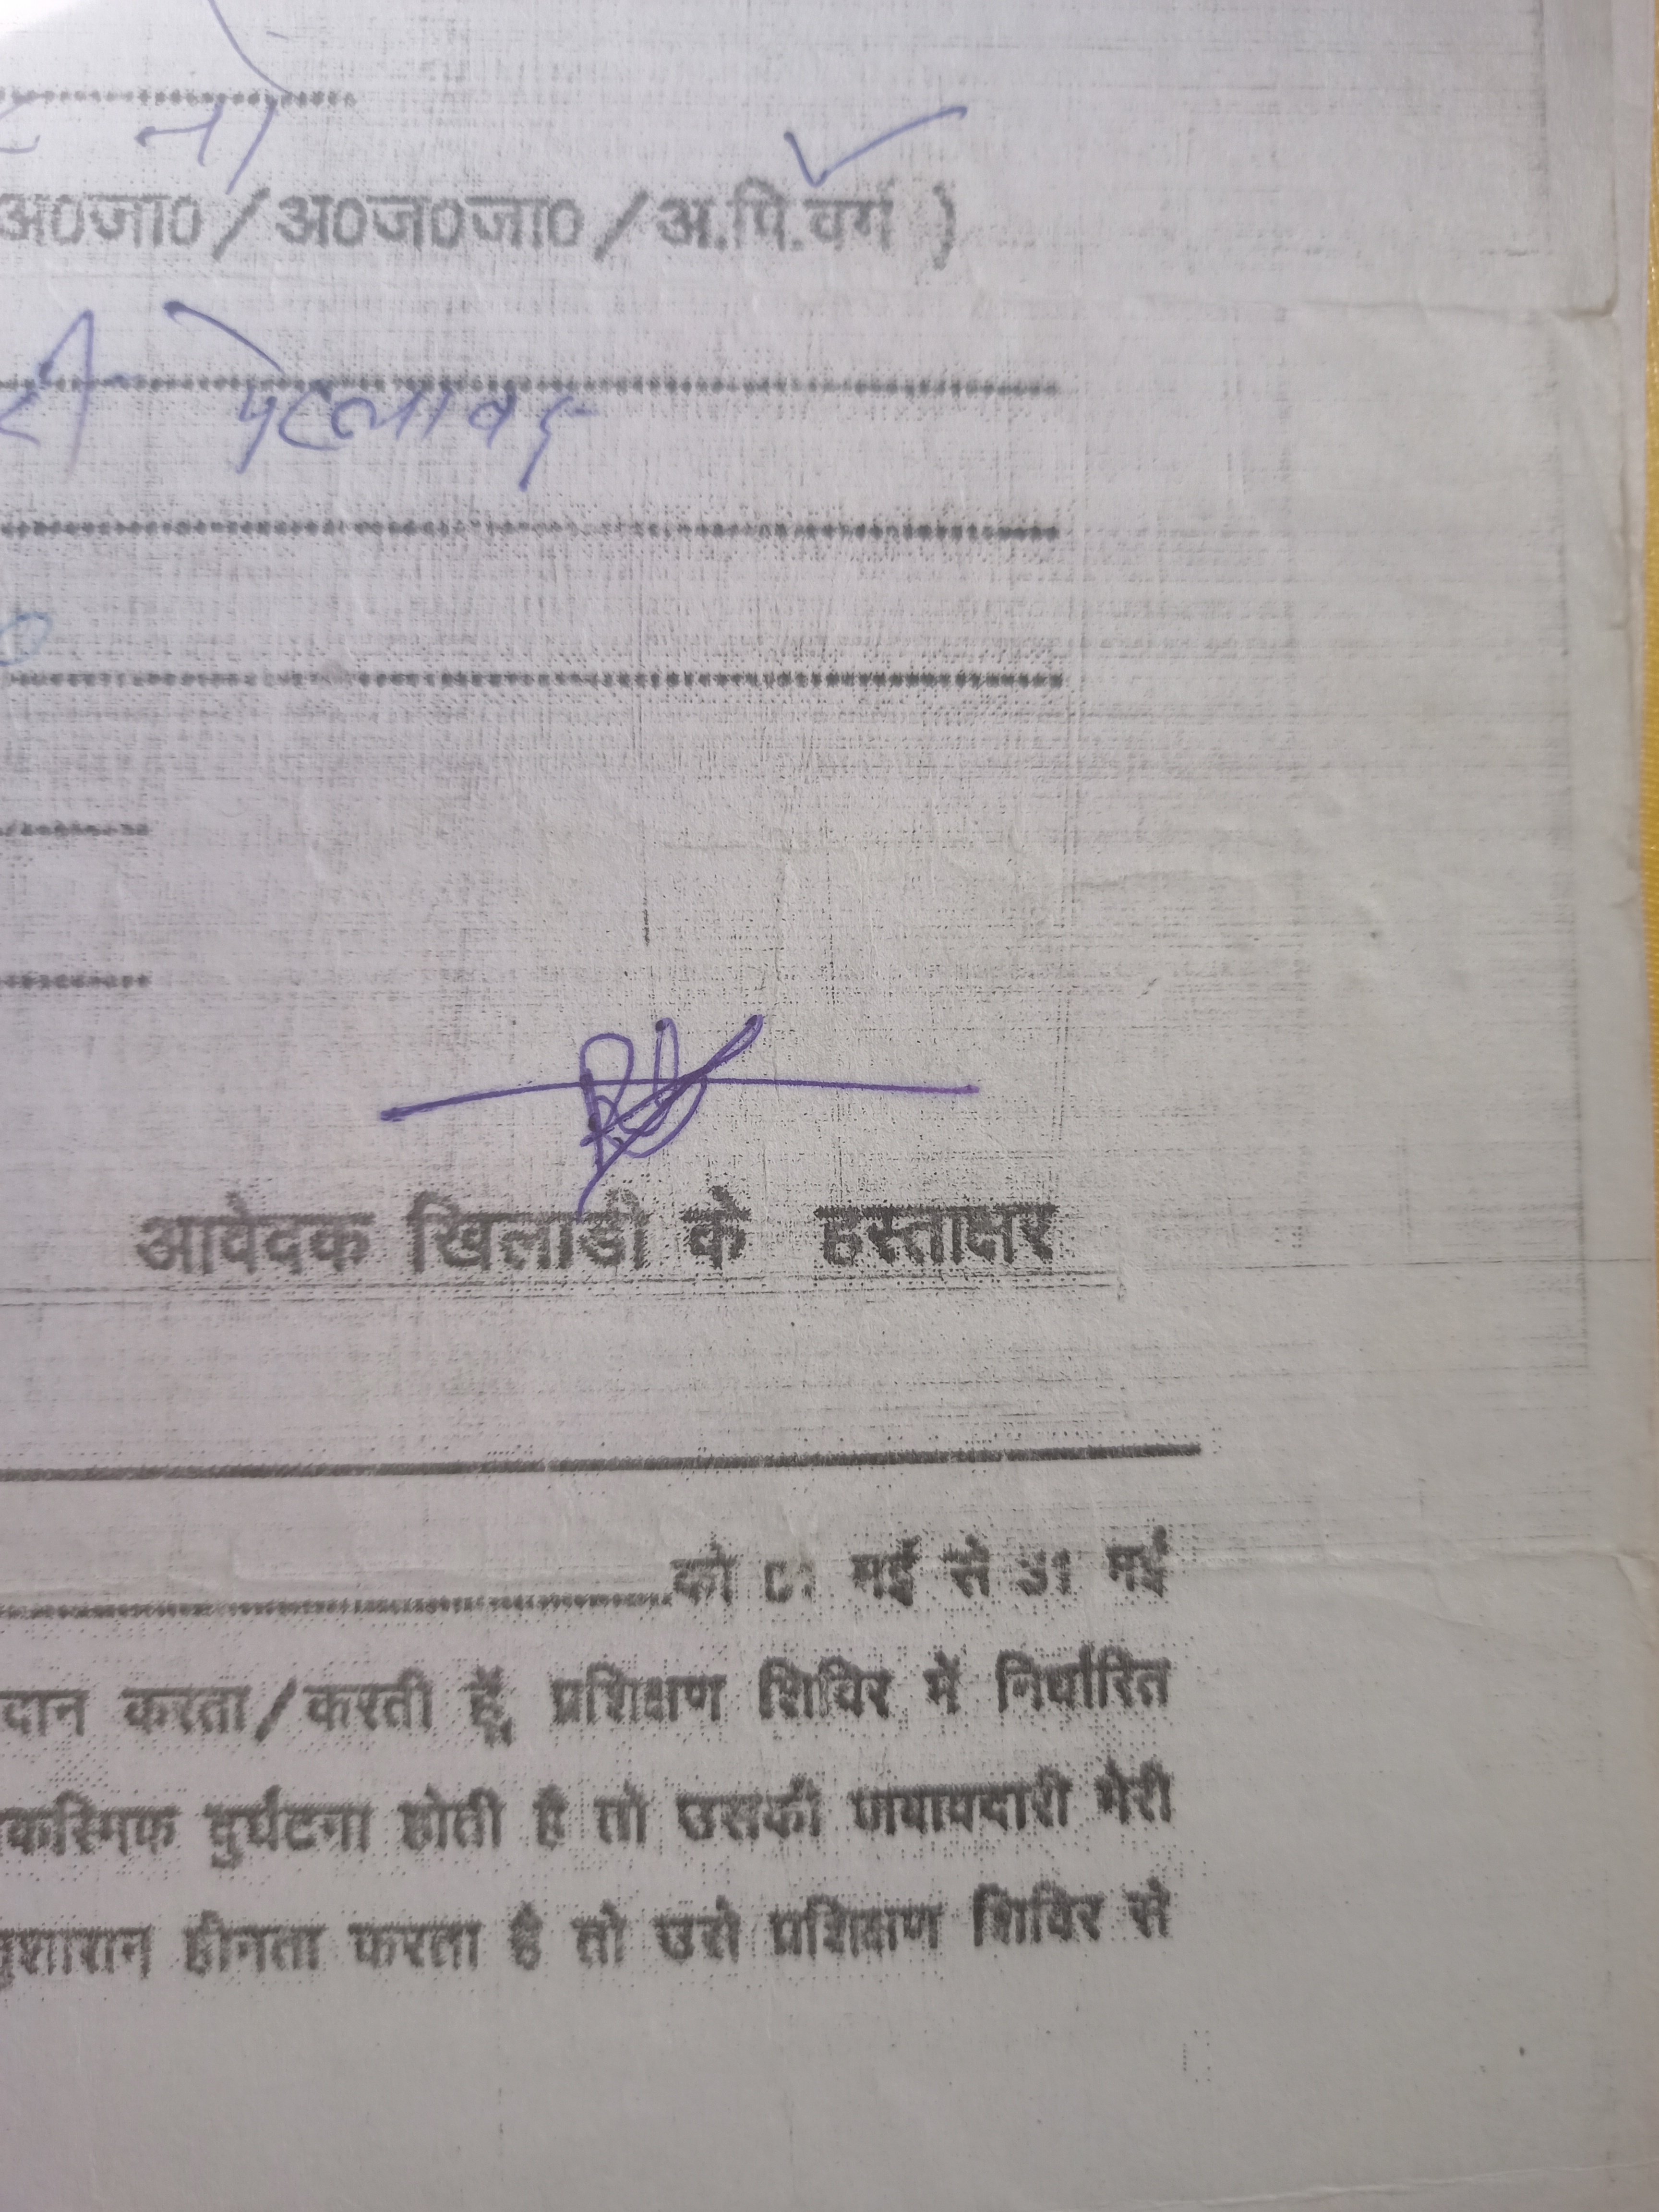 नो
अ0जा0 / अ0ज0जा0 / अ.पि.वर्ग )
री पेटलावद
आवेदक खिलाडी के हस्ताक्षर
को 01 मई से 31 मई
दान करता/करती हूँ, प्रशिक्षण शिविर में निर्धारित
कस्मिक दुर्घटना होती है तो उसकी जवाबदारी मेरी
नुशासन हीनता करता है तो उसे प्रशिक्षण शिविर से